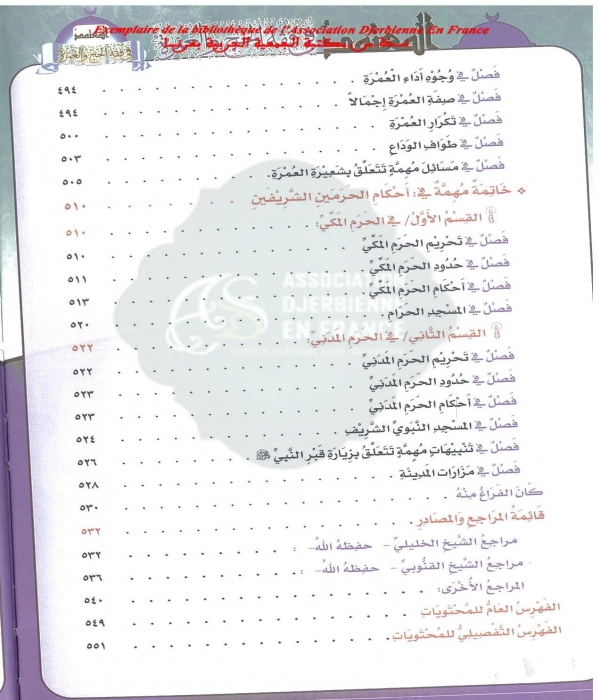 Exemplaire de la bibliothèque de l'Association Djerbienne En France
المعتمد
فَصْلٌ فِي وُجُوْهِ أَدَاءِ الْعُمْرَةِ ٤٩٤
فَصْلٌ فِي صِفَةِ العُمْرَةِ إِجْمَالاً ٤٩٤
فَصْلٌ فِي تَكْرَارِ العُمْرَةِ ٥٠٠
فَصْلٌ فِي طَوَافِ الوَدَاعِ ٥٠٣
فَصْلٌ فِي مَسَائِلَ مُهِمَّةٍ تَتَعَلَّقُ بِشَعِيْرَةِ العُمْرَةِ. ٥٠٥
خَاتِمَةٌ مُهِمَّةٌ فِي: أَحْكَامِ الحَرَمَيْنِ الشَّرِيْفَيْنِ ٥١٠
القِسْمُ الأَوَّلُ/ فِي الحَرَمِ المَكِّيِّ: ٥١٠
فَصْلٌ فِي تَحْرِيْمِ الحَرَمِ المَكِّيِّ ٥١٠
فَصْلٌ فِي حُدُوْدِ الحَرَمِ المَكِّيِّ ٥١١
فَصْلٌ فِي أَحْكَامِ الحَرَمِ المَكِّيِّ ٥١٣
فَصْلٌ فِي المَسْجِدِ الحَرَامِ ٥٢٠
القِسْمُ الثَّانِي/ فِي الحَرَمِ المَدَنِيِّ: ٥٢٢
فَصْلٌ فِي تَحْرِيْمِ الحَرَمِ المَدَنِيِّ ٥٢٢
فَصْلٌ فِي حُدُوْدِ الحَرَمِ المَدَنِيِّ ٥٢٣
فَصْلٌ فِي أَحْكَامِ الحَرَمِ المَدَنِيِّ ٥٢٣
فَصْلٌ فِي المَسْجِدِ النَّبَوِيِّ الشَّرِيْفِ ٥٢٤
فَصْلٌ فِي تَنْبِيْهَاتٍ مُهِمَّةٍ تَتَعَلَّقُ بِزِيَارَةِ قَبْرِ النَّبِيِّ ﷺ ٥٢٦
فَصْلٌ فِي مَزَارَاتِ المَدِيْنَةِ ٥٢٨
كَانَ الفَرَاغُ مِنْهُ ٥٣٠
قَائِمَةُ المَرَاجِعِ وَالمَصَادِرِ ٥٣٢
مراجعُ الشَّيْخِ الخليليِّ – حفِظهُ اللهُ – : ٥٣٢
مراجعُ الشَّيْخِ القنُّوبيِّ – حفِظهُ اللهُ – : ٥٣٦
المراجعُ الأُخْرَى: ٥٤٠
الفَهْرَسُ العَامُّ للمُحْتَوَيَاتِ ٥٤٩
الفَهْرَسُ التَّفْصِيْلِيُّ للمُحْتَوَيَاتِ ٥٥١
ASSOCIATION
DJERBIENNE
EN FRANCE